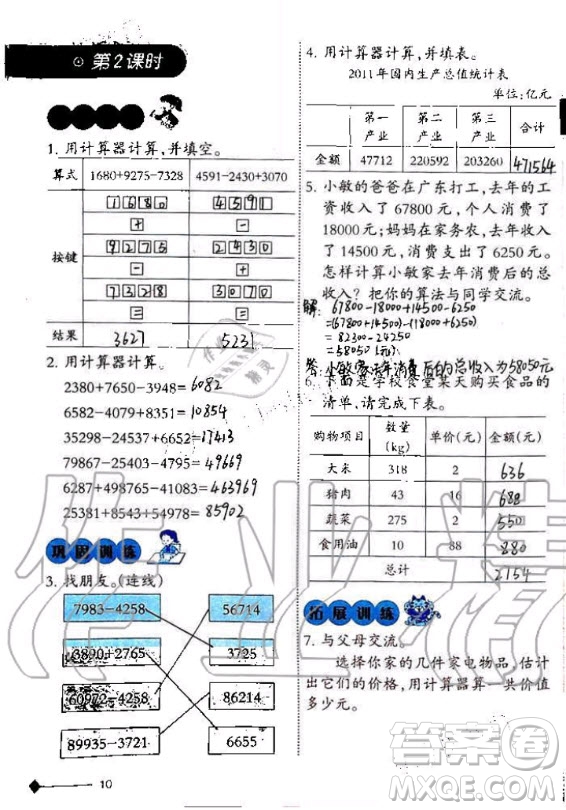 第2课时
1. 用计算器计算,并填空。
算式 1680+9275-7328 4591-2430+3070
按键 1680 4591
+ -
9275 2430
- +
7328 3070
= =
结果 3627 5231
2. 用计算器计算。
2380+7650-3948=6082
6582-4079+8351=10854
35298-24537+6652=17413
79867-25403-4795=49669
6287+498765-41083=463969
25381+8543+54978=85902
巩固训练
3. 找朋友。(连线)
7983-4258 56714
3890+2765 3725
60972-4258 86214
89935-3721 6655
10
4. 用计算器计算,并填表。
2011年国内生产总值统计表
单位:亿元
第一产业 第二产业 第三产业 合计
金额 47712 220592 203260 471564
5. 小敏的爸爸在广东打工,去年的工
资收入了 67800 元,个人消费了
18000元;妈妈在家务农,去年收入
了 14500 元,消费支出了 6250 元。
怎样计算小敏家去年消费后的总
收入? 把你的算法与同学交流。
解: 67800-18000+14500-6250
=(67800+14500)-(18000+6250)
=82300-24250
=58050(元)
答:小敏家去年消费后的总收入为58050元
6. 下面是学校食堂某天购买食品的
清单,请完成下表。
购物项目 数量(kg) 单价(元) 金额(元)
大米 318 2 636
猪肉 43 16 688
蔬菜 275 2 550
食用油 10 88 880
总计 2154
拓展训练
7. 与父母交流。
选择你家的几件家电物品,估计
出它们的价格,用计算器算一共价值
多少元。
作业精灵
答案圈
MXQE.COM